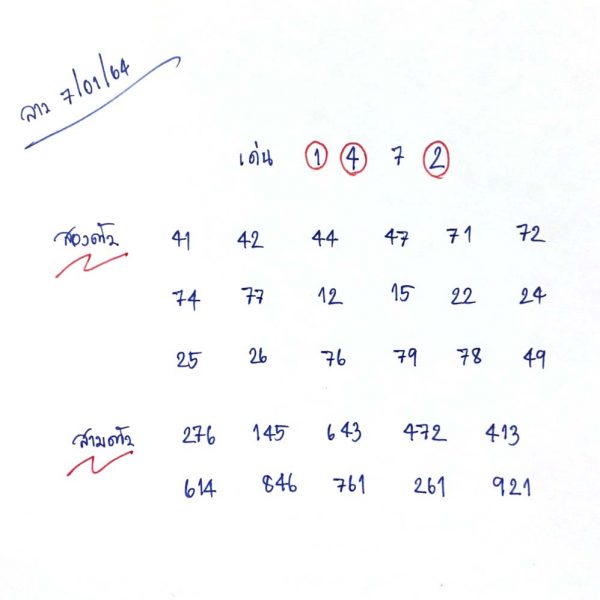 ลาว 7/01/64
เด่น 1 4 7 2
สองตัว 41 42 44 47 71 72
74 77 12 15 22 24
25 26 76 79 78 49
สามตัว 276 145 643 472 413
614 846 761 261 921